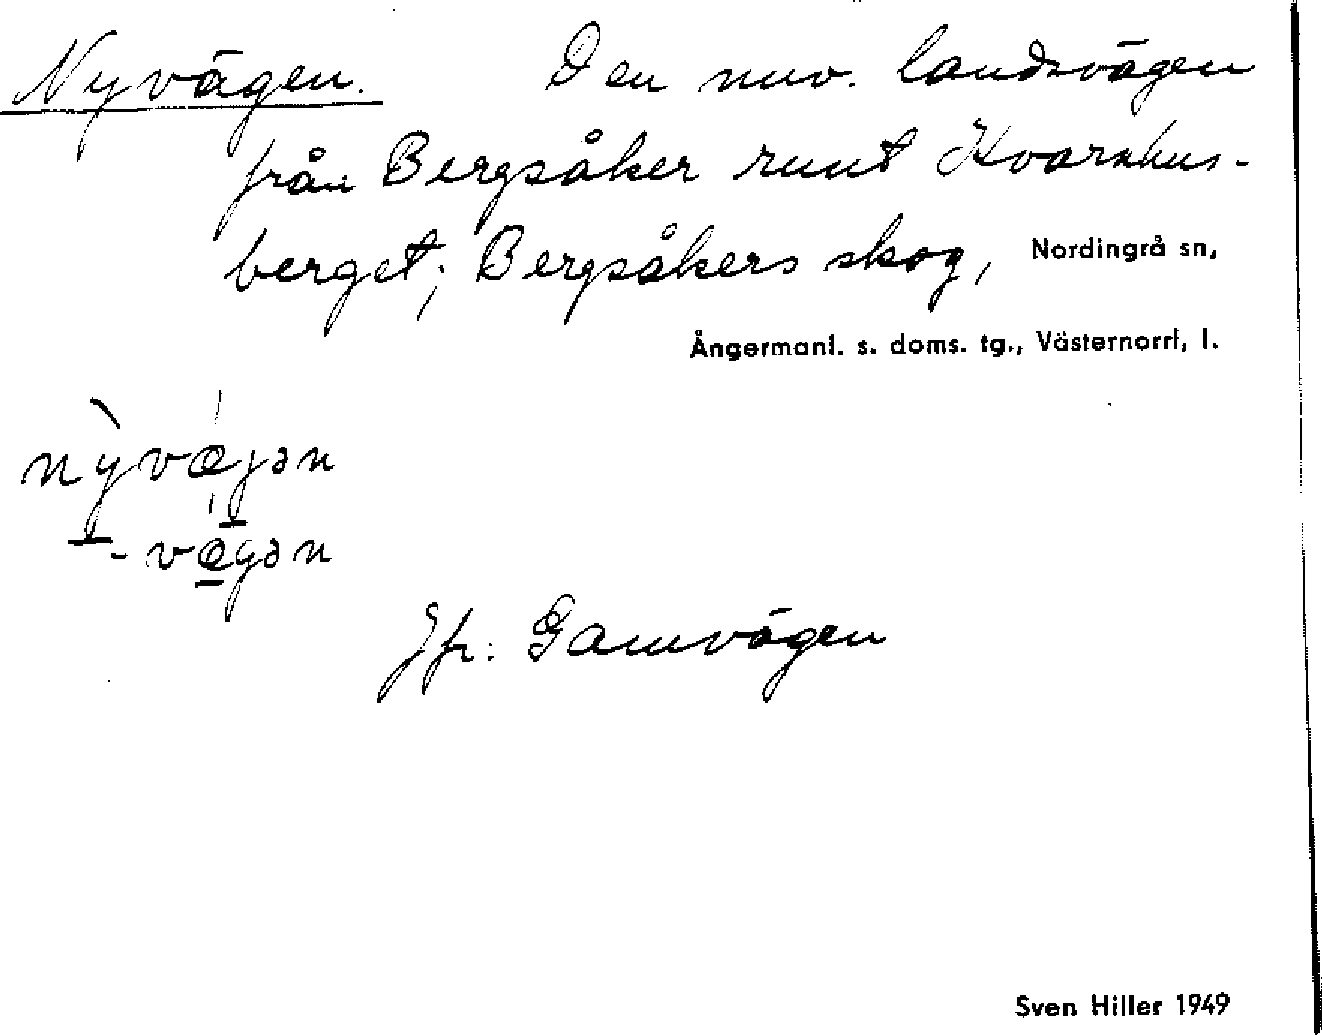 Nyvägen. Den nuv. landsvägen
från Bergsåker runt Kvarnhus-
berget; Bergsåkers skog, Nordingrå sn,
Ångermanl. s. doms. tg., Västernorrl, l.
nỳvægən
-vægən
Jfr: Gamvägen
Sven Hiller 1949